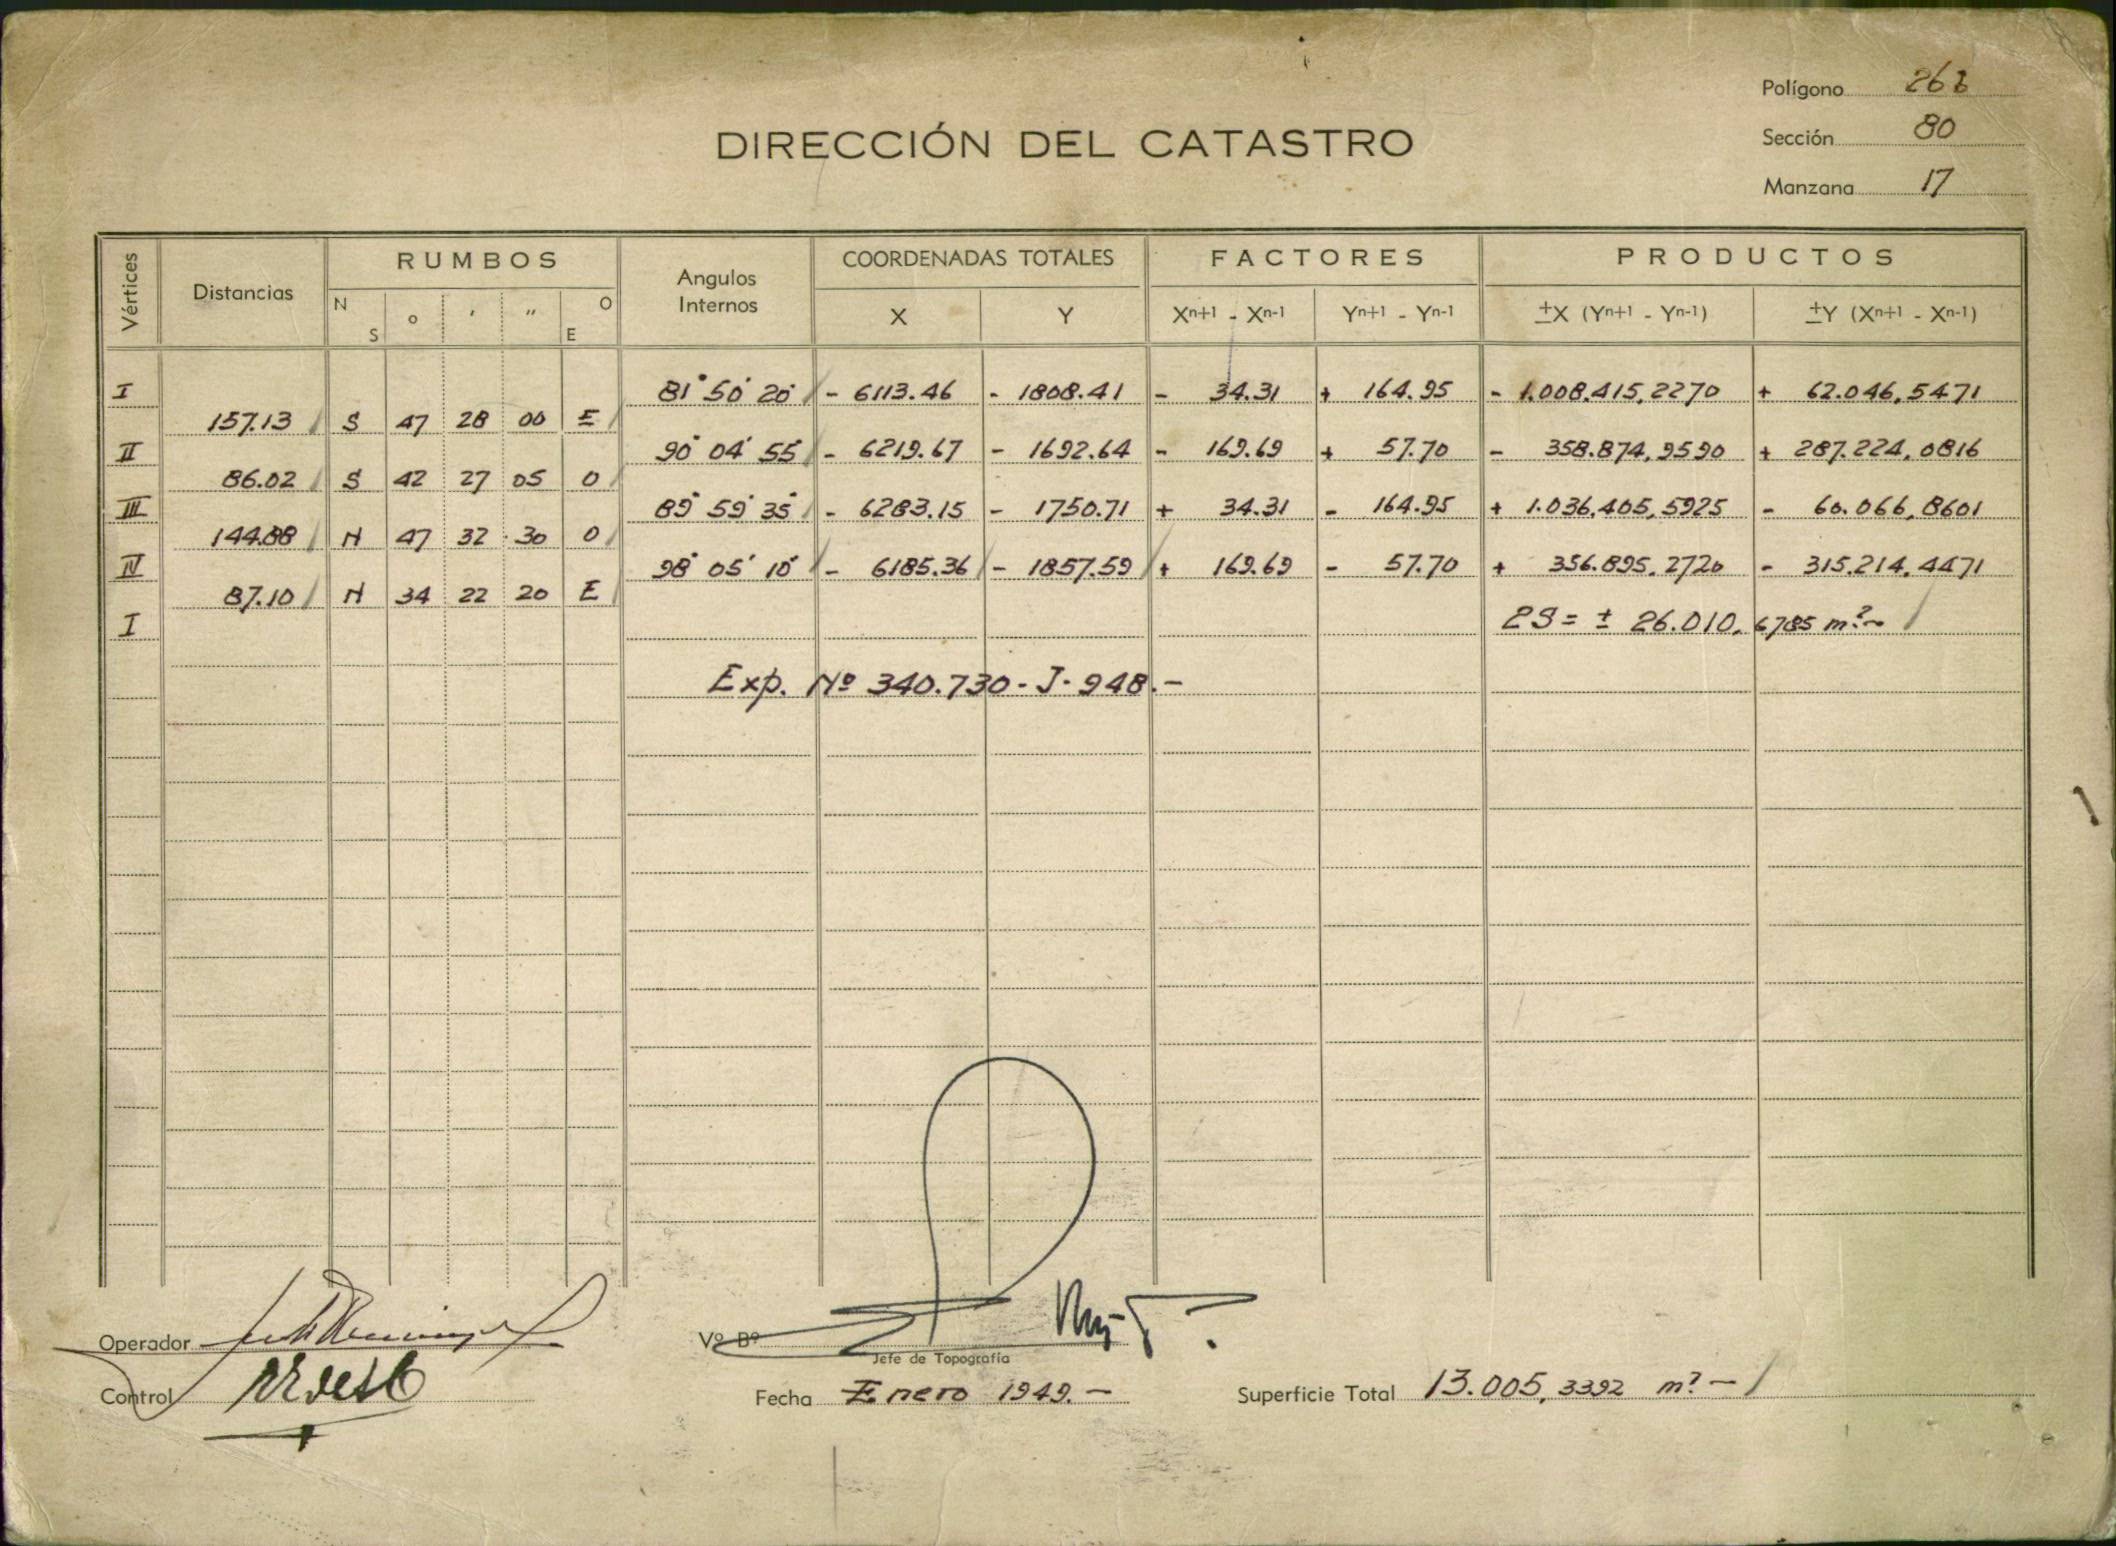 Polígono
DIRECCIÓN DEL CATASTRO
Sección 80
Manzana 17
Vértices Distancias RUMBOS Angulos Internos COORDENADAS TOTALES FACTORES PRODUCTOS
N S o ' " O E X Y Xn+1 - Xn-1 Yn+1 - Yn-1 ±X (Yn+1 - Yn-1) ±Y (Xn+1 - Xn-1)
I 81° 50' 20" - 6113.46 - 1808.41 - 34.31 + 164.95 - 1.008.415,2270 + 62.046,5471
157.13 S 47 28 00 E
II 90° 04' 55" - 6219.67 - 1692.64 - 169.69 + 57.70 - 358.874,9590 + 287.224,0816
86.02 S 42 27 05 O
III 89° 59' 35" - 6283.15 - 1750.71 + 34.31 - 164.95 + 1.036.405,5925 - 60.066,8601
144.88 N 47 32 30 O
IV 98° 05' 10" - 6185.36 - 1857.59 + 169.69 - 57.70 + 356.895,2720 - 315.214,4471
87.10 N 34 22 20 E
I 2S = ± 26.010,6785 m².-
Exp. Nº 340.730 - J - 948.-
Operador
Vº Bº
Jefe de Topografía
Control
Fecha Enero 1949.-
Superficie Total 13.005,3392 m².-